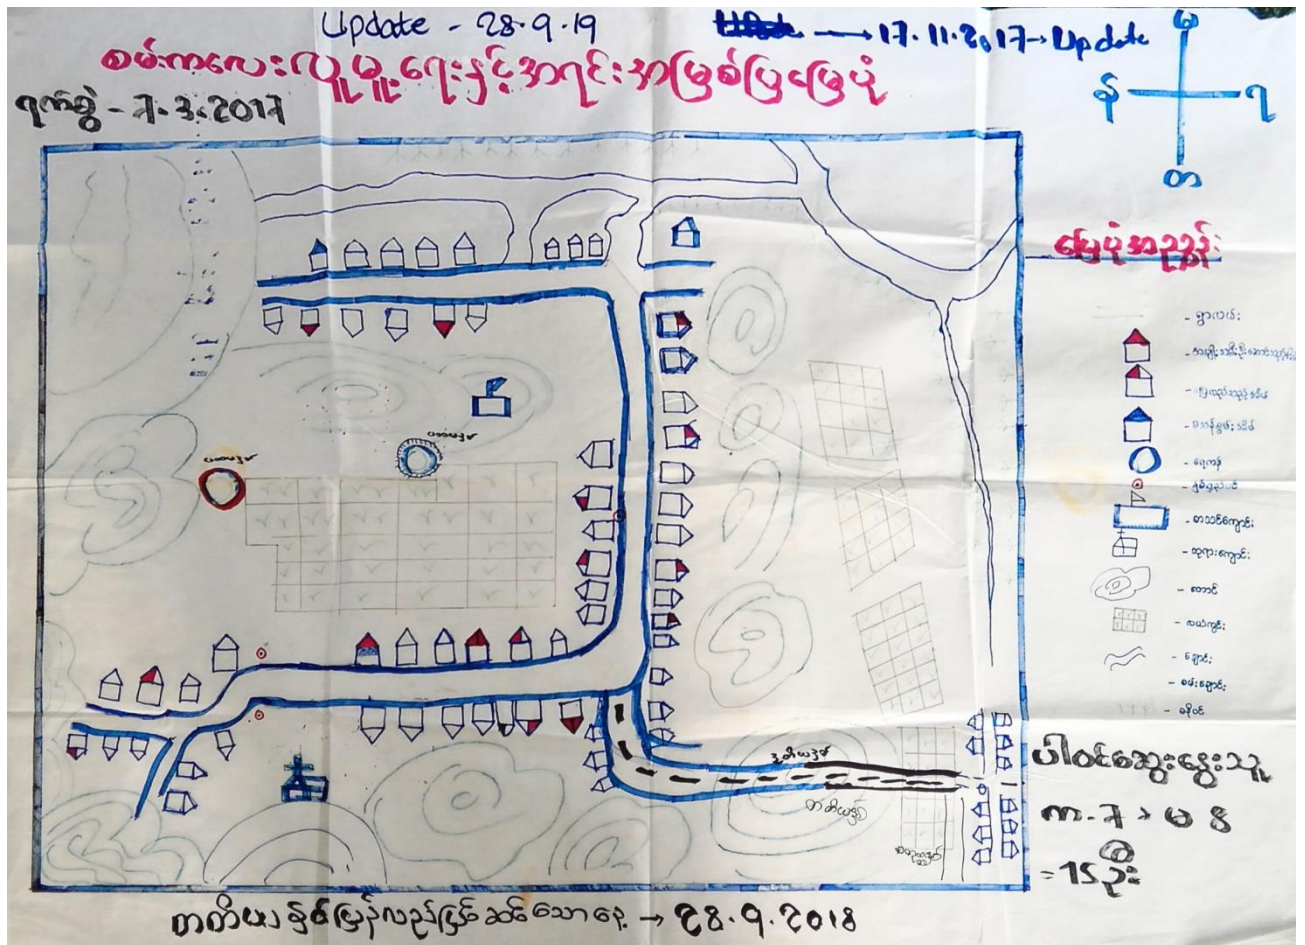 Update - 28.9.19
→ 17.11.2017 → Update
စမ်းကလေးလူမှုရေးနှင့်အရင်းအမြစ်ပြမြေပုံ
ရက်စွဲ - 7.3.2017
မ
န် ရ
တ
မြေပုံအညွှန်း
- ရွာလမ်း
- ရေကန်
- စာသင်ကျောင်း
- ဘုရားကျောင်း
- တောင်
- လယ်ကွင်း
- ချောင်း
- စမ်းချောင်း
ပထမနှစ်
ပထမနှစ်
ဒုတိယနှစ်
တတိယနှစ်
စတုတ္ထနှစ်
ပါဝင်ဆွေးနွေးသူ
က - 7 ၁ မ 8
= 15 ဦး
တတိယနှစ်ပြန်လည်ပြင်ဆင်သောနေ့ → 28.9.2018